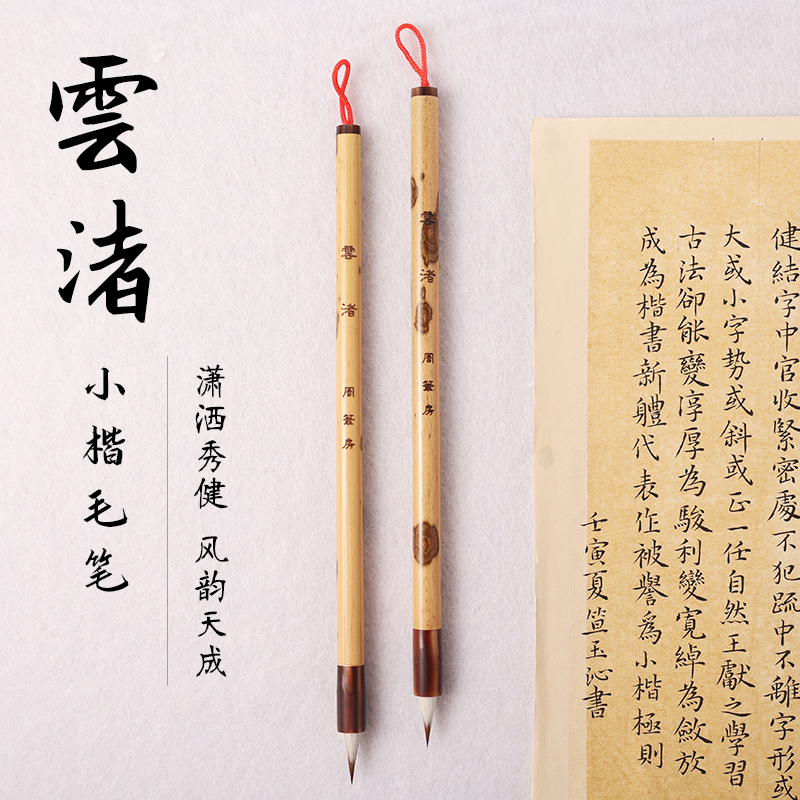 雲渚
小楷毛笔
潇洒秀健 风韵天成
雲渚 周筆房
雲渚 周筆房
健結字中宫收緊密處不犯疏中不離字形或
大或小字势或斜或正一任自然王獻之學習
古法卻能變淳厚為駿利變寬綽為斂放
成為楷書新體代表作被譽爲小楷極則
壬寅夏笪玉沁書